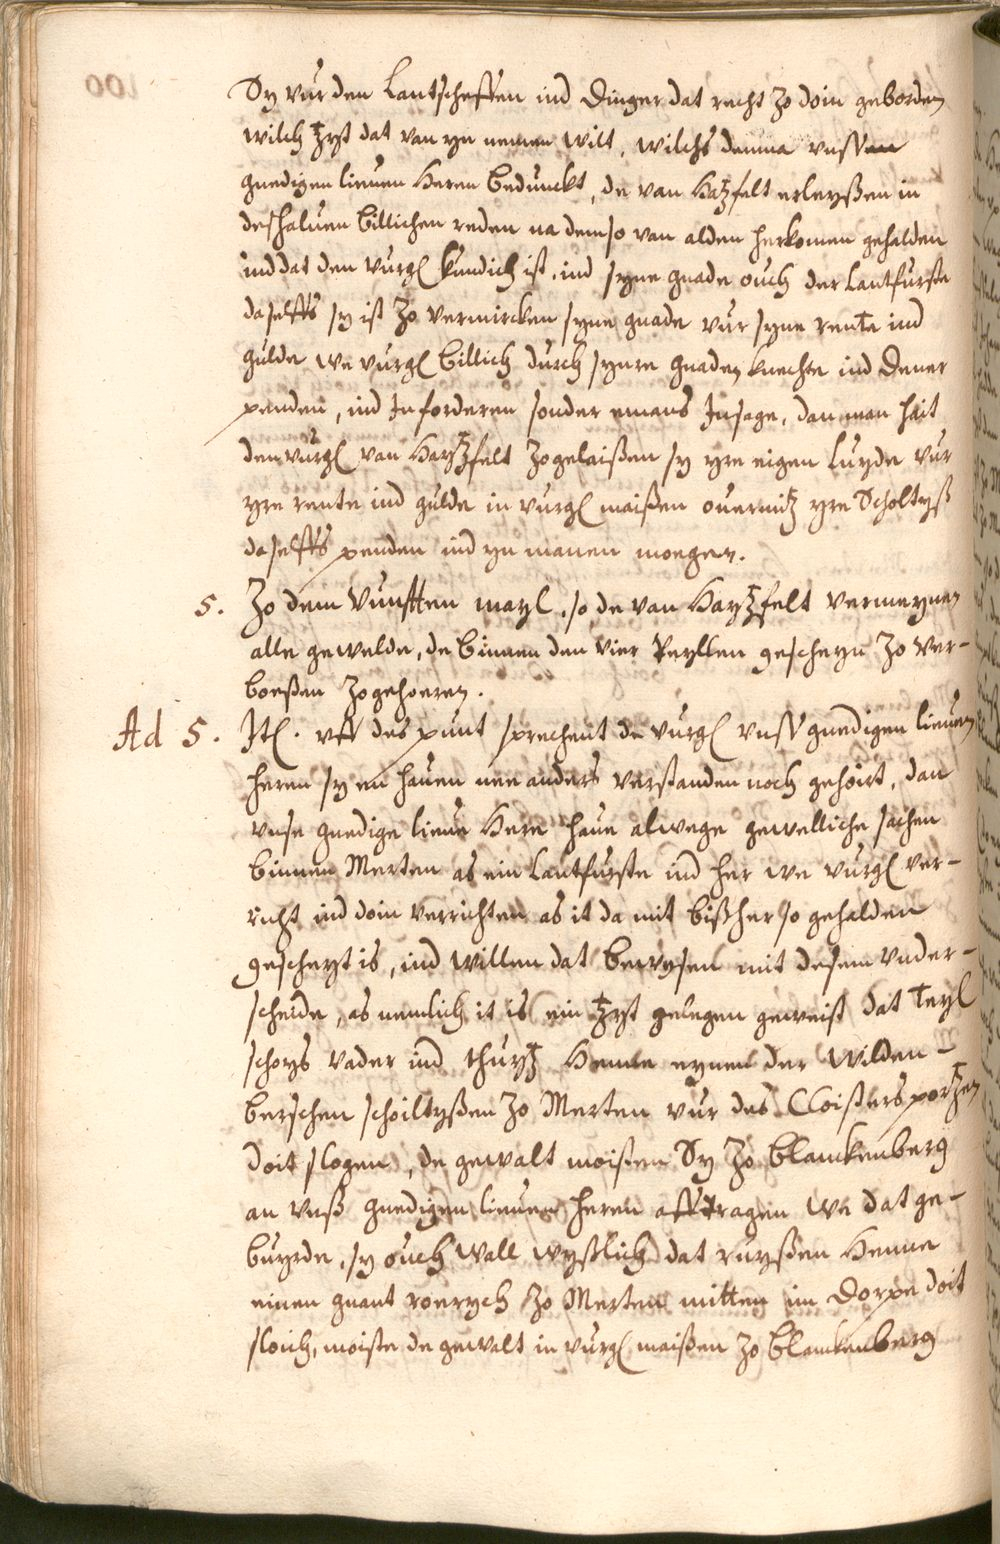 Sy vur den Lantscheffen ind Dinger dat recht zo doin geborden
wilch tzyt dat van yn nemen wilt, wilchs demna vnssen
gnedigen lieuen Heren beduncket, de van Hatzfelt erleyßen in
deshaluen billichen reden na dem so van alden herkomen gehalden
ind dat den vurgl kundich ist, ind syne gnade ouch der Lantfurste
daselffs sy ist zo vermircken syne gnade vur syne rente ind
gulde we vurgl billich durch synre gnaden knechte ind Dener
penden, ind Inforderen sonder emans Insage, dan man hait
den vurgl van Haytzfelt zogelaißen sy yre eigen Luyde vur
yre rente ind gulde in vurgl maißen ouermitz yre Scholtyß
daselffs penden ind yn manen moegen.
5. Zo dem Vunfften mayl, so de van Haytzfelt vermeynen
alle gewelde, de binnen den vier Peyllen gescheyn zo ver-
boeßen zogehoeren.
Ad 5. Itl. vff des punt sprechent de vurgl vnss gnedigen lieuen
heren sy en hauen nee anders verstanden noch gehoirt, dan
vnse gnedige lieue Here haue alwege gewelliche sachen
binnen Merten as ein Lantfurste ind her we vurgl ver-
richt ind doin verrichten as it da mit bißher so gehalden
gescheyt is, ind willen dat bewysen mit desem vnder-
scheide, as nemlich it is ein tzyt gelegen geweist dat Teyl
schoys vader ind thuytz Henne eynen der Wilden-
berschen schoiltyßen zo Merten vur des Cloisters portzen
doit slogen, de gewalt moisten Sy zo Blanckenberg
an vnß gnedigen lieuen heren afftragen we dat ge-
buyrde, sy ouch wall wyßlich dat ruyßen Henne
einen gnant roerych zo Merten mitten im Dorpe doit
sloich, moiste de gewalt in vurgl maißen zo Blanckenberg